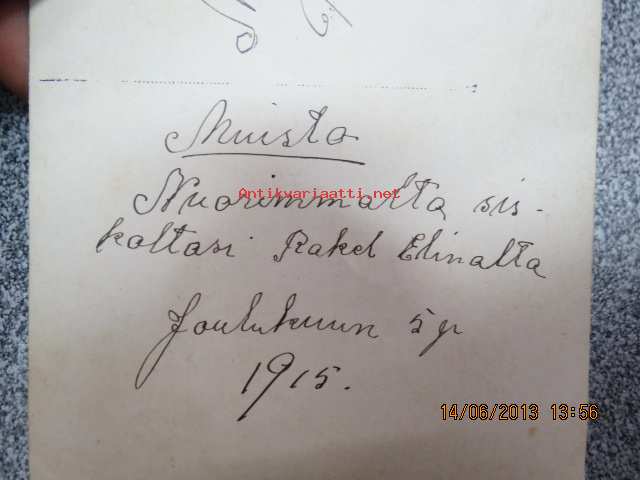 Muisto
Antikvariaatti.net
Nuorimmalta sis-
koltasi Rakel Elinalta
Joulukuun 5 p
1915.
14/06/2013 13:56